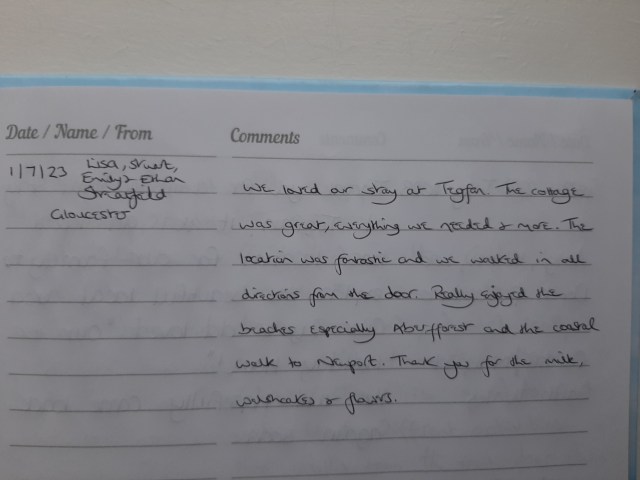 Date / Name / From
Comments
1/7/23 Lisa, Stuart,
Emily & Ethan
Gloucester
We loved our stay at Tegfan. The cottage
was great, everything we needed & more. The
location was fantastic and we walked in all
directions from the door. Really enjoyed the
beaches especially and the coastal
walk to Newport. Thank you for the milk,
welshcakes & flowers.